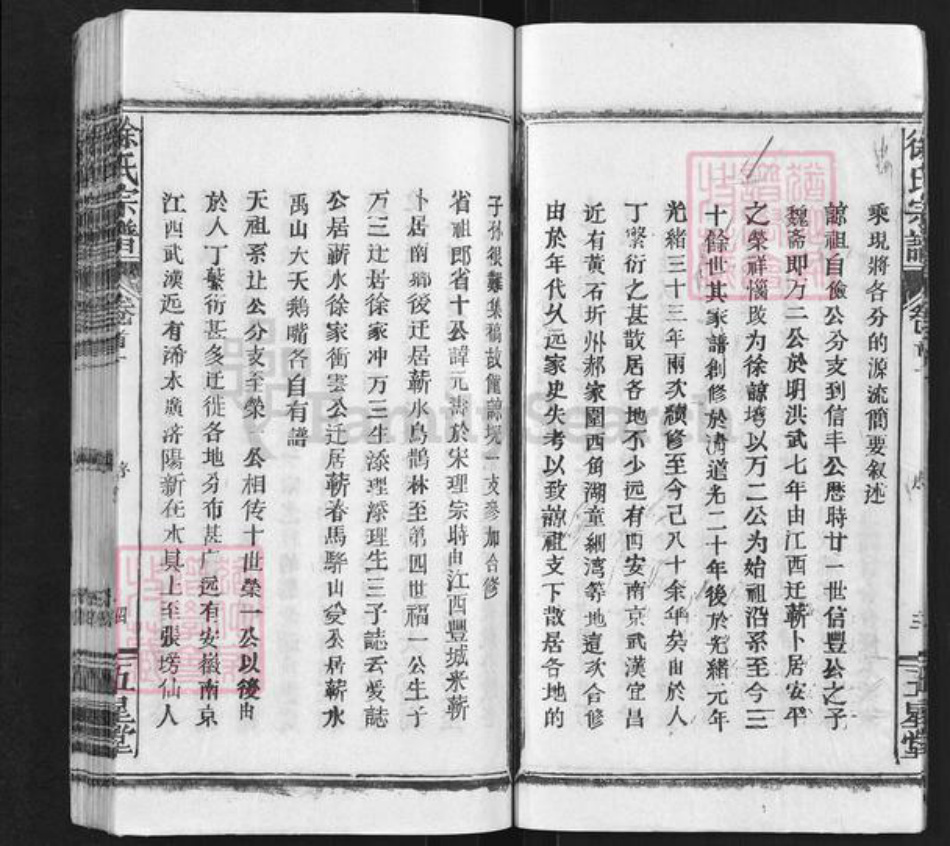 徐氏宗譜
卷首
三
五星堂
乘現將各分的源流簡要叙述
諒祖自儉公分支到信丰公曆時廿一世信豐公之子
魏斋即万二公於明洪武七年由江西迁蕲卜居安平
之榮祥惱改为徐諒塆以万二公为始祖沿系至今三
十餘世其家譜創修於清道光二十年後於光緒元年
光緒三十三年兩次續修至今己八十余年矣由於人
丁繁衍之甚散居各地不少远有西安南京武漢宜昌
近有黃石圻州郝家圍西角湖童細湾等地這次合修
由於年代久远家史失考以致諒祖支下散居各地的
子孙很難集稿故僅諒塆一支参加合修
省祖郎省十公諱元壽於宋理宗時由江西豐城来蕲
卜居南鄉後迁居蕲水烏鵲林至第四世福一公生子
万三迁居徐家冲万三生添理添理生三子誌云愛誌
公居蕲水徐家衝雲公迁居蕲春馬驊山受公居蕲水
禹山大天鹅嘴各自有譜
天祖系让公分支至榮一公相传十世榮一公以後由
於人丁繁衍甚多迁徙各地分布甚广远有安徽南京
江西武漢近有浠水廣济陽新在水其上至張塝仙人
徐氏宗譜
卷首
四
五星堂
FamilySearch